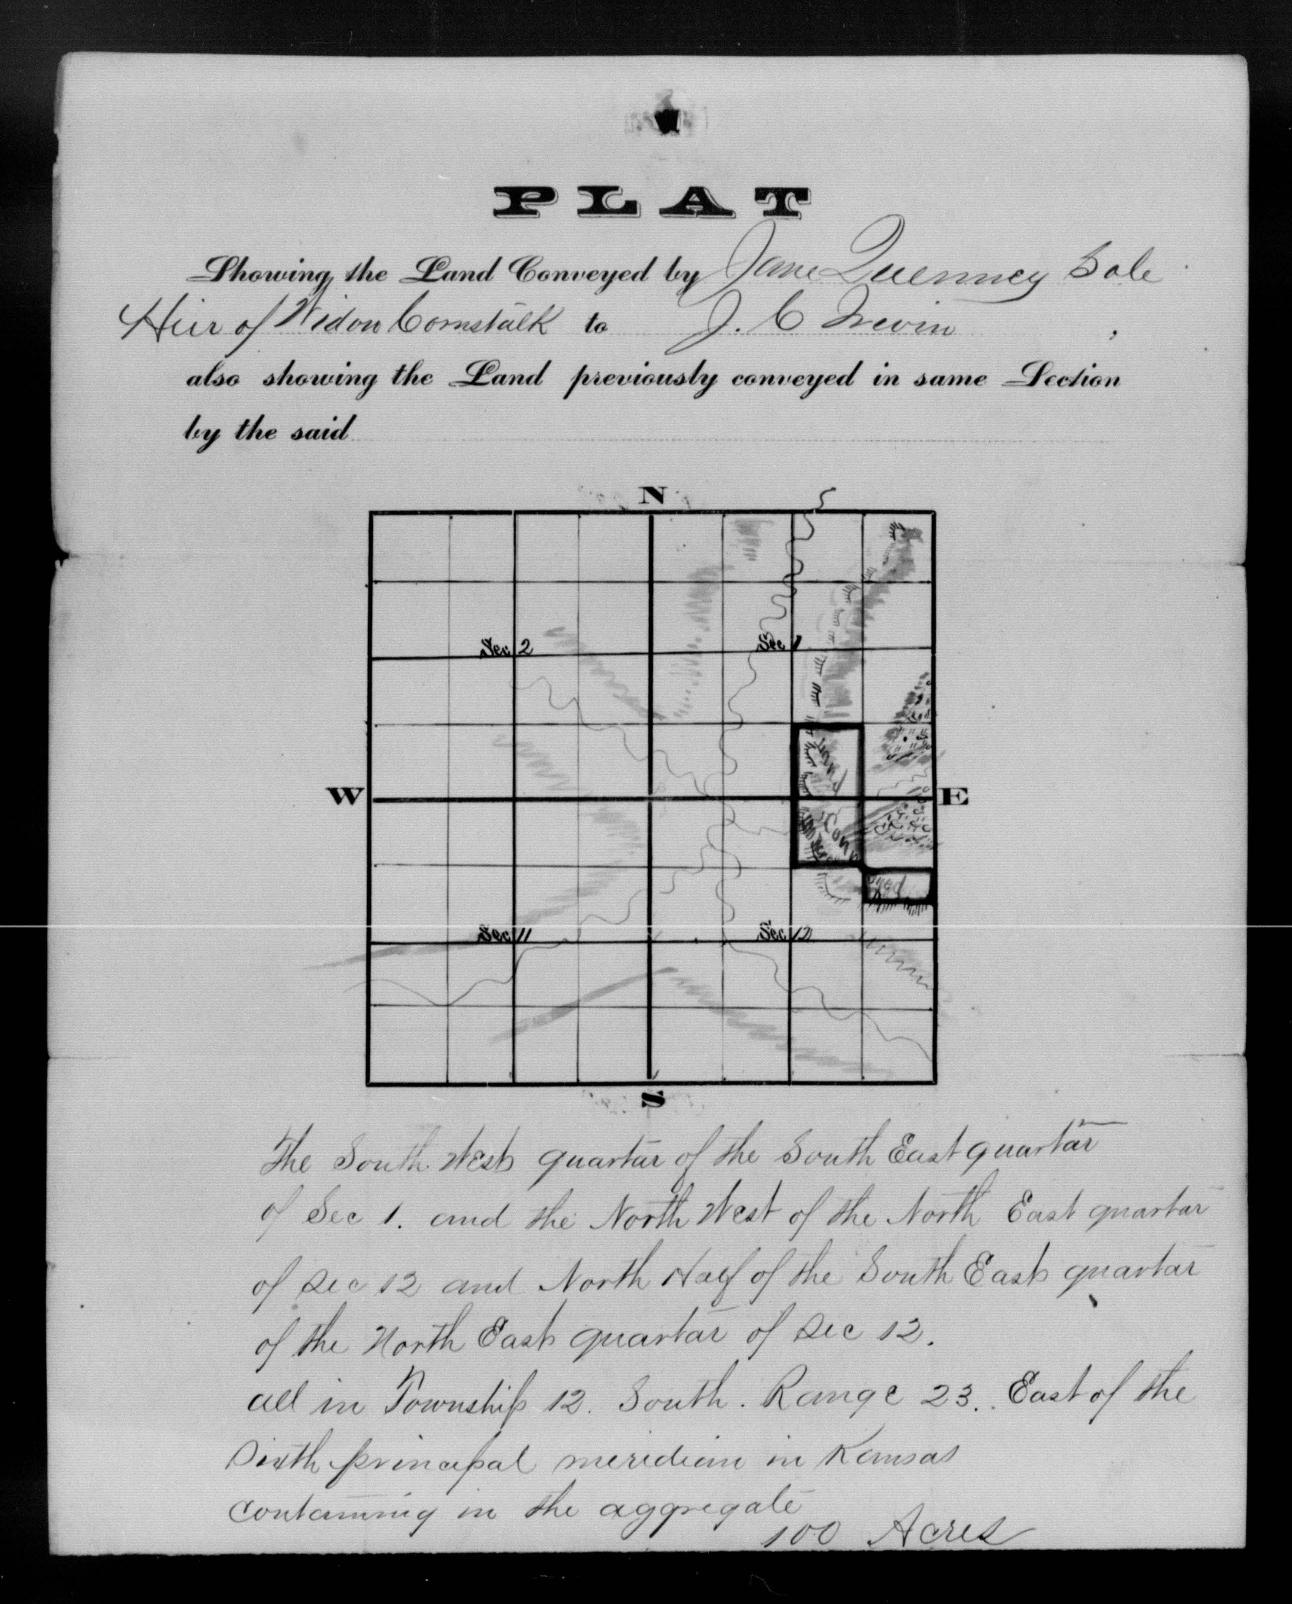 PLAT
Showing the Land Conveyed by Jane Quenney Sole
Heir of Widow Cornstalk to J. C Irwin ,
also showing the Land previously conveyed in same Section
by the said
N
Sec 2 Sec 1
W E
Land
Conveyed
Sec 11 Sec 12
S
The South West quarter of the South East quarter
of Sec 1. and the North West of the North East quarter
of Sec 12 and North Half of the South East quarter
of the North East quarter of Sec 12.
all in Township 12. South. Range 23. East of the
Sixth principal meridian in Kansas
containing in the aggregate
100 Acres